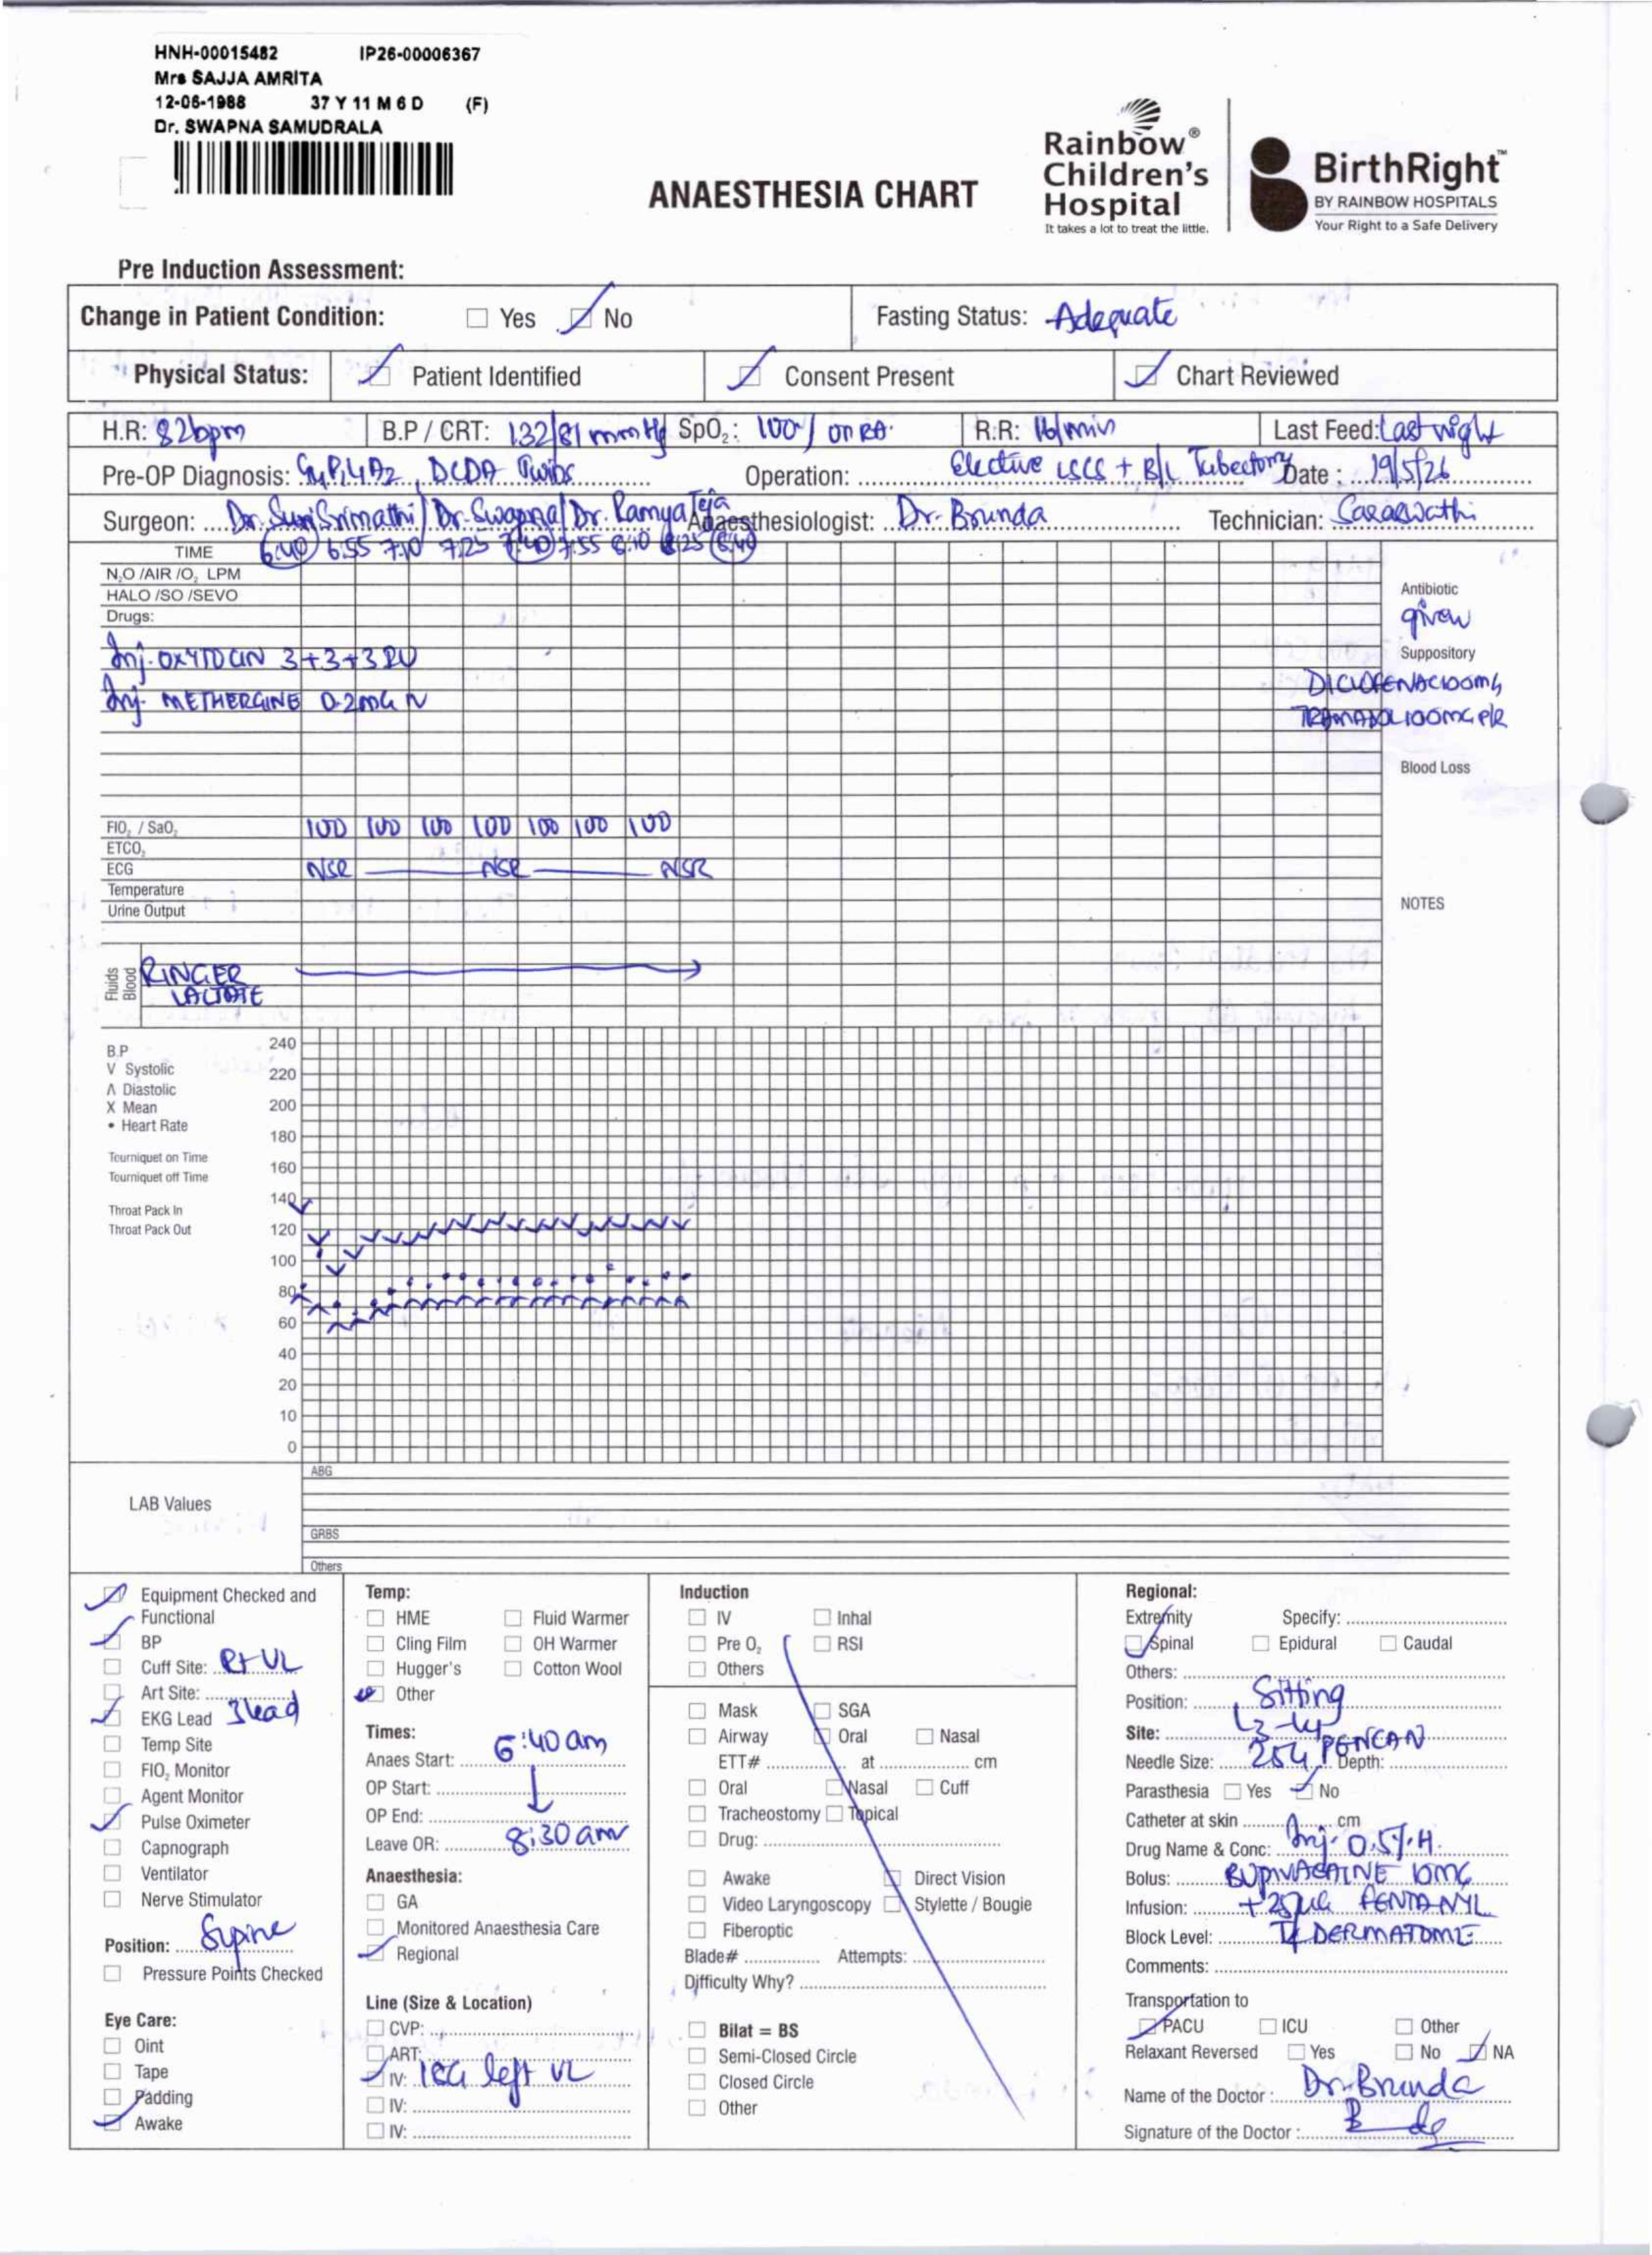 HNH-00015482 IP26-00006367
Mrs SAJJA AMRITA
12-06-1988 37 Y 11 M 6 D (F)
Dr. SWAPNA SAMUDRALA
ANAESTHESIA CHART
Rainbow®
Children's
Hospital
It takes a lot to treat the little.
BirthRight™
BY RAINBOW HOSPITALS
Your Right to a Safe Delivery
Pre Induction Assessment:
Change in Patient Condition: Yes No Fasting Status: Adequate
Physical Status: Patient Identified Consent Present Chart Reviewed
H.R: 82bpm B.P / CRT: 132/81 mmHg SpO₂: 100% on RA. R:R: 16/min Last Feed: Last night
Pre-OP Diagnosis: DCDA Twins Operation: Elective LSCS + B/L Tubectomy Date : 19/5/26
Surgeon: Dr. Srimathi / Dr. Swapna / Dr. Ramya Teja Anaesthesiologist: Dr. Brunda Technician: Saraswathi
TIME 6:40 6:55 7:10 7:25 7:40 7:55 8:10 8:25 8:40
N₂O /AIR /O₂ LPM
HALO /SO /SEVO
Drugs:
Inj. OXYTOCIN 3+3+3 IU
Inj. METHERGINE 0.2MG IV
Antibiotic
given
Suppository
DICLOFENAC 100MG
TRAMADOL 100MG P/R
Blood Loss
FIO₂ / SaO₂ 100 100 100 100 100 100 100
ETCO₂
ECG NSR NSR NSR
Temperature
Urine Output
NOTES
Fluids
Blood
RINGER
LACTATE
B.P
V Systolic
Λ Diastolic
X Mean
• Heart Rate
Tourniquet on Time
Tourniquet off Time
Throat Pack In
Throat Pack Out
240
220
200
180
160
140
120
100
80
60
40
20
10
0
LAB Values
ABG
GRBS
Others
Equipment Checked and
Functional
BP
Cuff Site: Rt UL
Art Site:
EKG Lead 3 lead
Temp Site
FIO₂ Monitor
Agent Monitor
Pulse Oximeter
Capnograph
Ventilator
Nerve Stimulator
Position: Supine
Pressure Points Checked
Eye Care:
Oint
Tape
Padding
Awake
Temp:
HME Fluid Warmer
Cling Film OH Warmer
Hugger's Cotton Wool
Other
Times:
Anaes Start: 6:40 am
OP Start:
OP End:
Leave OR: 8:30 am
Anaesthesia:
GA
Monitored Anaesthesia Care
Regional
Line (Size & Location)
CVP:
ART:
IV: 18G left UL
IV:
IV:
Induction
IV Inhal
Pre O₂ RSI
Others
Mask SGA
Airway Oral Nasal
ETT# at cm
Oral Nasal Cuff
Tracheostomy Topical
Drug:
Awake Direct Vision
Video Laryngoscopy Stylette / Bougie
Fiberoptic
Blade# Attempts:
Difficulty Why?
Bilat = BS
Semi-Closed Circle
Closed Circle
Other
Regional:
Extremity Specify:
Spinal Epidural Caudal
Others:
Position: Sitting
Site: L3-L4
Needle Size: 25G PENCAN Depth:
Parasthesia Yes No
Catheter at skin cm
Drug Name & Conc: Inj. 0.5% H.
Bolus: BUPIVACAINE 10MG
Infusion: + 25µg FENTANYL
Block Level: DERMATOME
Comments:
Transportation to
PACU ICU Other
Relaxant Reversed Yes No NA
Name of the Doctor : Dr. Brunda
Signature of the Doctor :